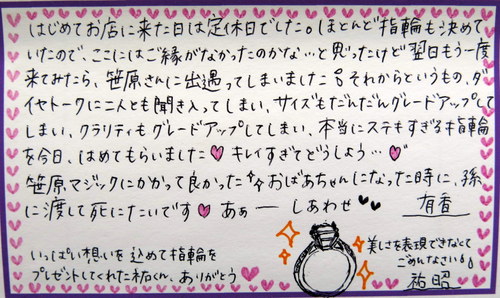 はじめてお店に来た日は定休日でした。ほとんど指輪も決めて
いたので、ここにはご縁がなかったのかな…と思ったけど翌日もう一度
来てみたら、笹原さんに出遇ってしまいました!それからというもの、ダ
イヤトークに二人とも聞き入ってしまい、サイズもだんだんグレードアップして
しまい、クラリティもグレードアップしてしまい、本当にステキすぎる指輪
を今日、はめてもらいました♥キレイすぎてどうしよう…♥"
笹原マジックにかかって良かったです。おばあちゃんになった時に、孫
に渡して死にたいです♥あぁーしあわせ♥♥ 有香
いっぱい想いを込めて指輪を
プレゼントしてくれた祐くん、ありがとう♥
美しさを表現できなくて
ごめんなさい!!
祐昭